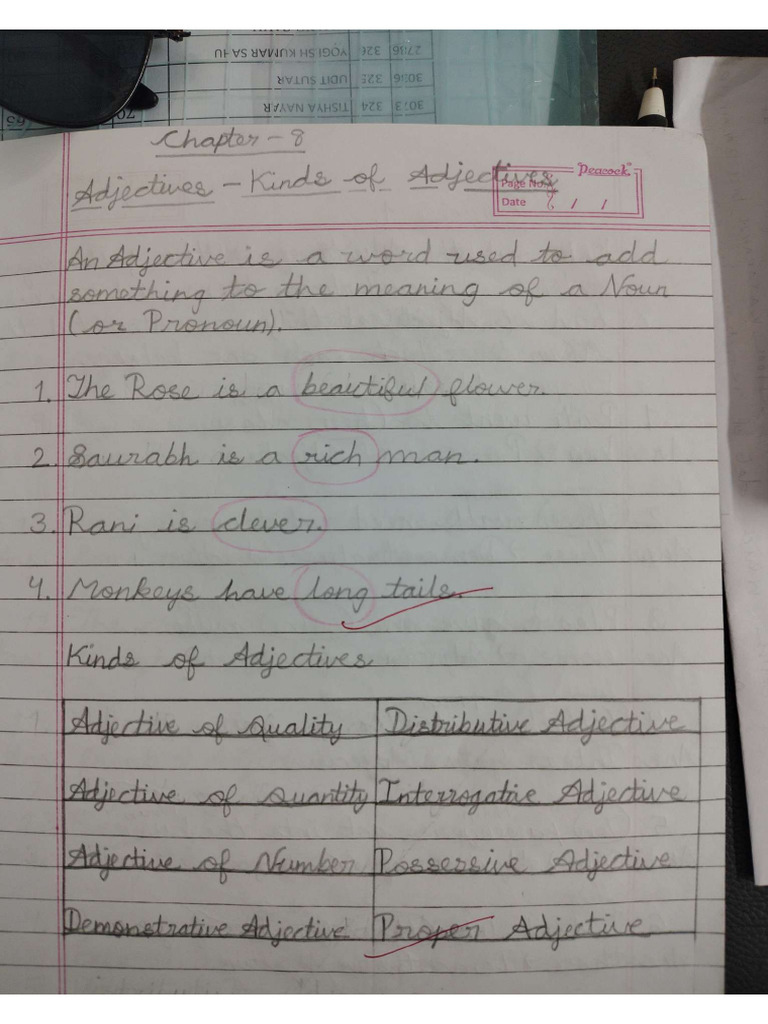 27:36 YOGESH KUMAR SAHU 326
30:36 UDIT SUTAR 325
30:13 TISHYA NAYAR 324
Chapter - 8
Adjectives - Kinds of Adjectives
Peacock
Page No.
Date / /
An Adjective is a word used to add
something to the meaning of a Noun
(or Pronoun).
1. The Rose is a beautiful flower.
2. Saurabh is a rich man.
3. Rani is clever.
4. Monkeys have long tails.
Kinds of Adjectives
Adjective of Quality Distributive Adjective
Adjective of Quantity Interrogative Adjective
Adjective of Number Possessive Adjective
Demonstrative Adjective Proper Adjective